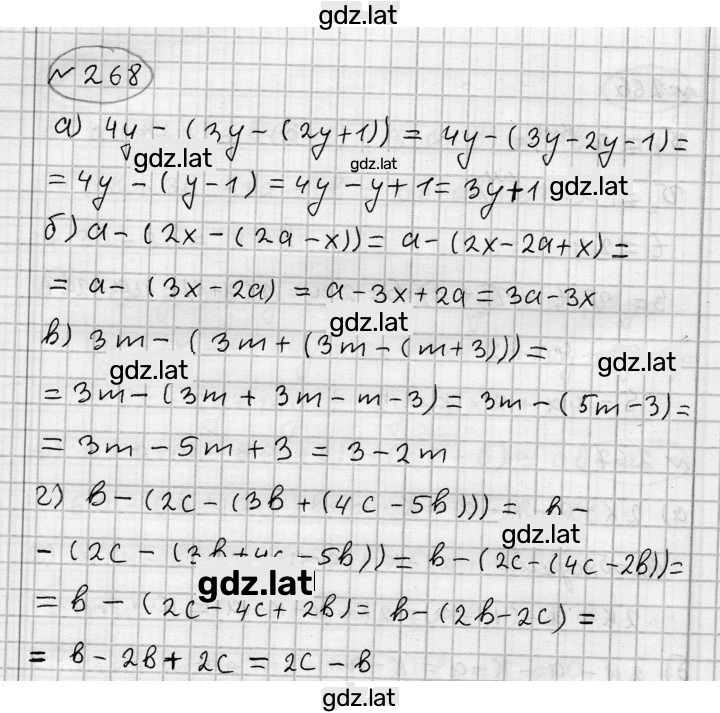 gdz.lat
№268
а) 4y - (3y - (2y+1)) = 4y - (3y-2y-1) =
gdz.lat gdz.lat
= 4y - (y-1) = 4y - y + 1 = 3y+1 gdz.lat
б) a - (2x - (2a-x)) = a - (2x-2a+x) =
= a - (3x-2a) = a-3x+2a = 3a-3x
gdz.lat
в) 3m - (3m + (3m - (m+3))) =
gdz.lat gdz.lat
= 3m - (3m + 3m - m - 3) = 3m - (5m-3) =
= 3m - 5m + 3 = 3 - 2m
г) b - (2c - (3b + (4c - 5b))) = b -
gdz.lat
- (2c - (3b+4c-5b)) = b - (2c - (4c-2b)) =
gdz.lat
= b - (2c - 4c + 2b) = b - (2b-2c) =
= b - 2b + 2c = 2c - b
gdz.lat